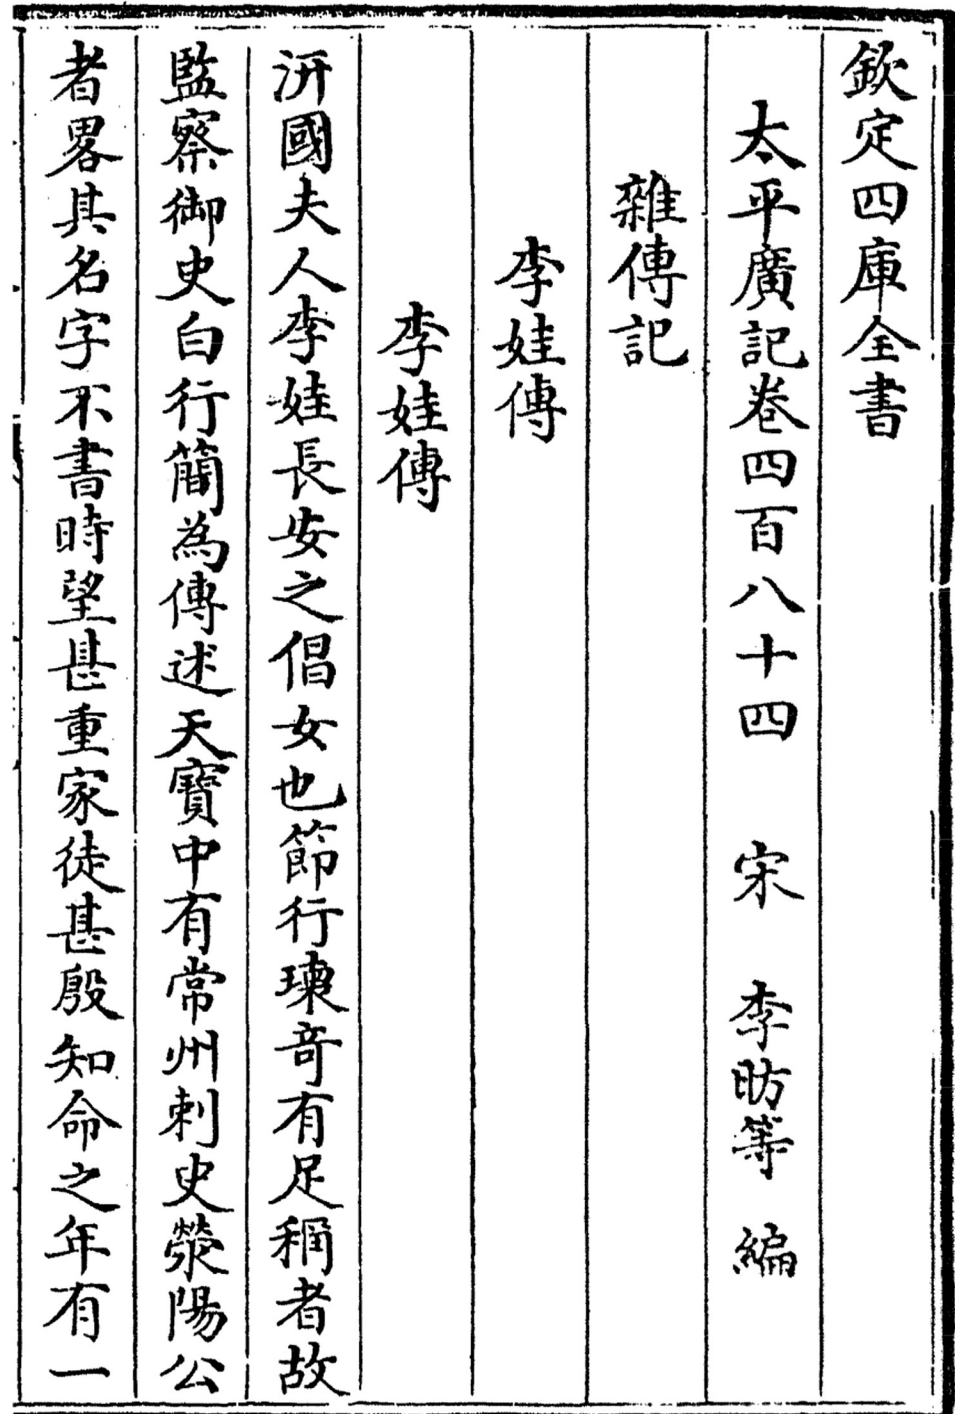 欽定四庫全書
太平廣記卷四百八十四 宋 李昉等 編
雜傳記
李娃傳
李娃傳
汧國夫人李娃長安之倡女也節行瓌奇有足稱者故
監察御史白行簡為傳述天寶中有常州刺史滎陽公
者畧其名字不書時望甚重家徒甚殷知命之年有一